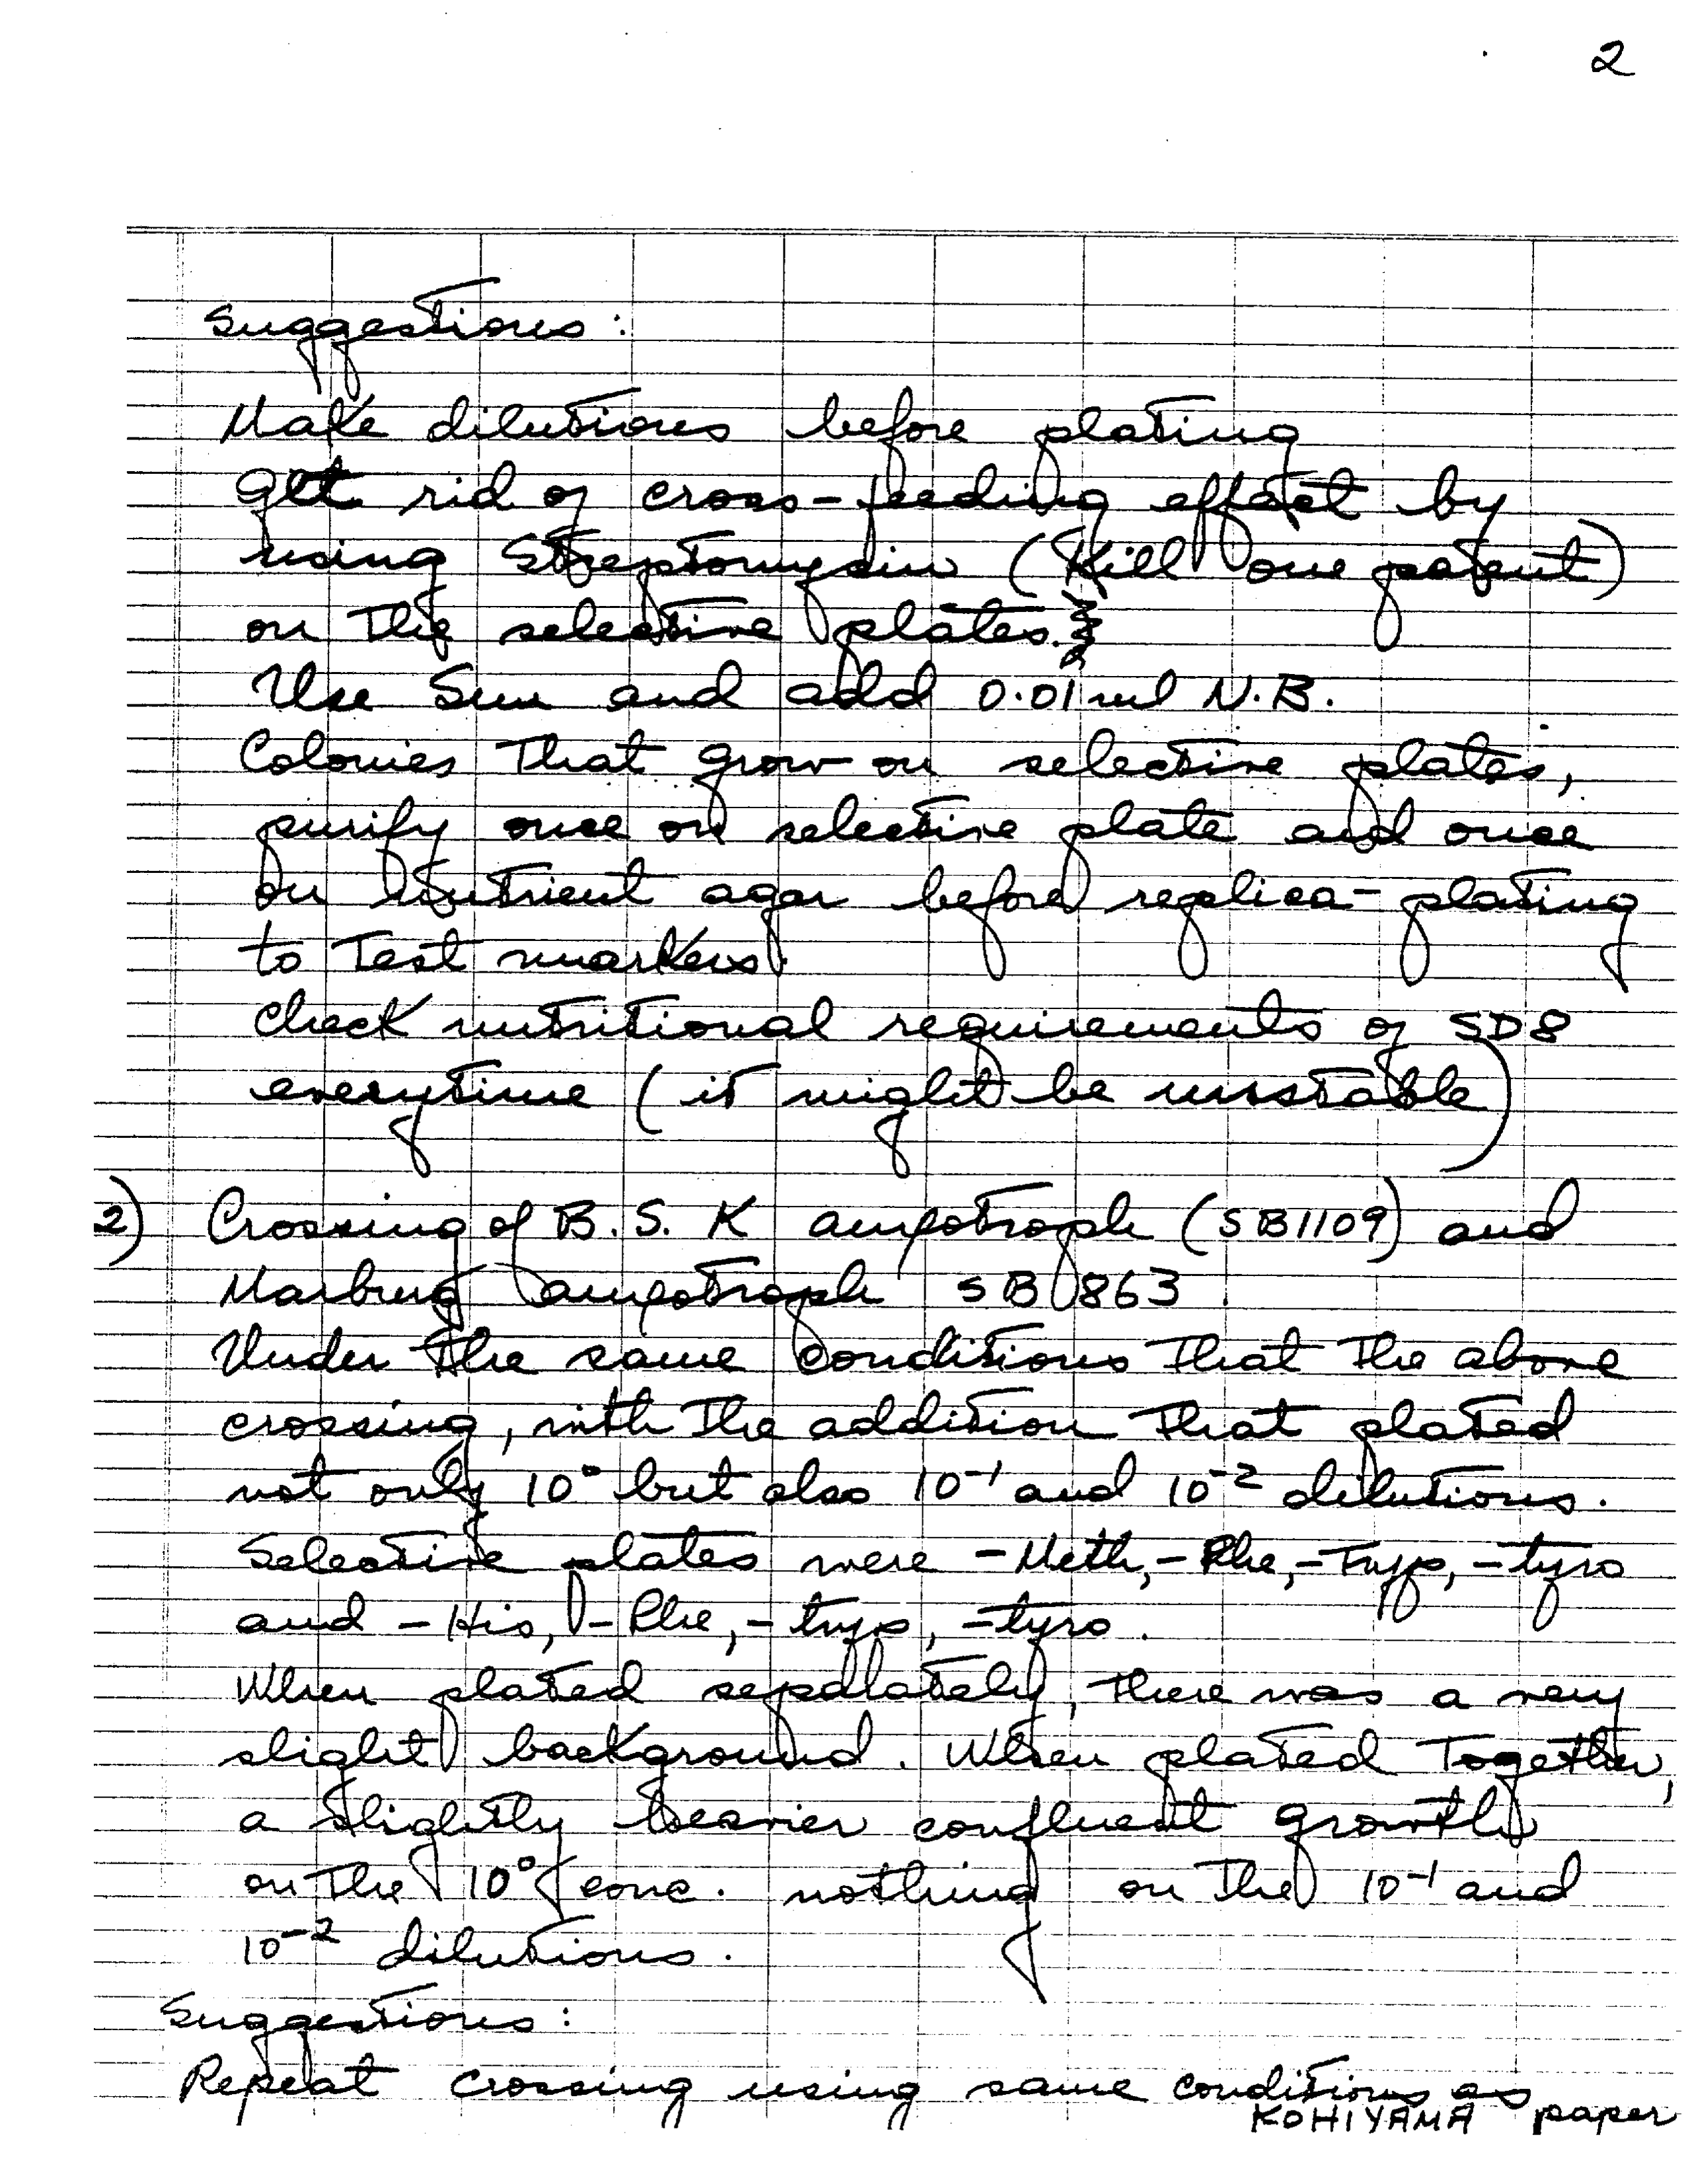 2
Suggestions:
Make dilutions before plating
Get rid of cross-feeding effect by
using Streptomycin (Kill one parent)
on the selective plates.
Use Sm and add 0.01 ml N.B.
Colonies that grow on selective plates,
purify once on selective plate and once
on nutrient agar before replica-plating
to test markers.
Check nutritional requirements of SD8
everytime (it might be unstable)
2) Crossing of B.S. K auxotroph (SB1109) and
Marburg auxotroph SB 863.
Under the same conditions that the above
crossing, with the addition that plated
not only 10⁰ but also 10⁻¹ and 10⁻² dilutions.
Selective plates were -Meth, -Phe, -Tryp, -tyro
and -His, -Phe, -tryp, -tyro.
When plated separately, there was a very
slight background. When plated together,
a slightly heavier confluent growth
on the 10⁰ conc. nothing on the 10⁻¹ and
10⁻² dilutions.
Suggestions:
Repeat crossing using same conditions as
KOHIYAMA paper